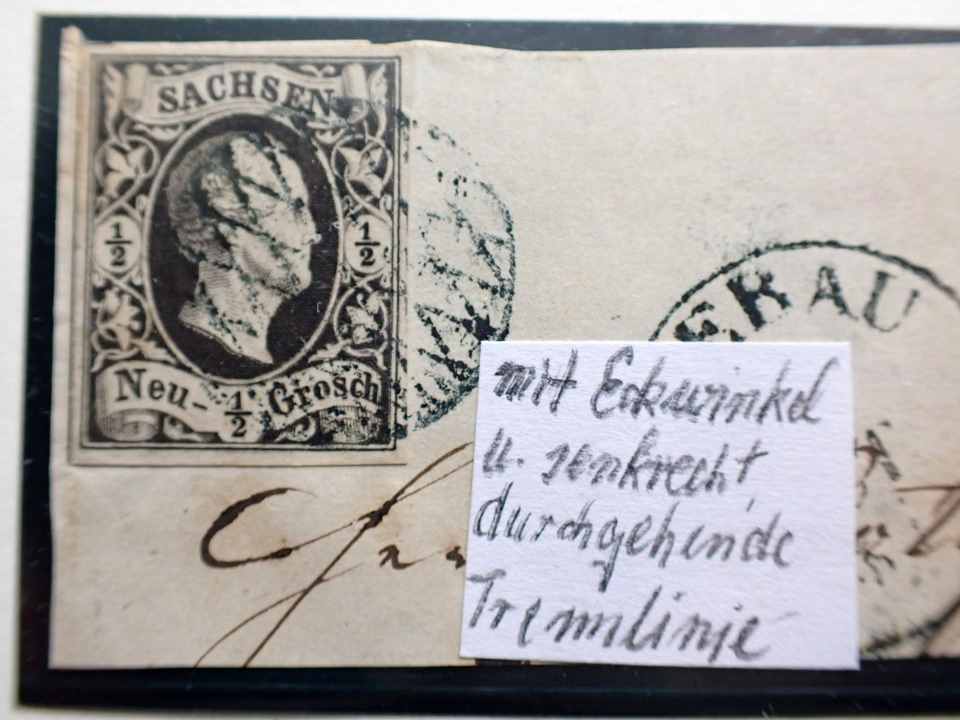 SACHSEN
½ ½
Neu- ½ Grosch
RAU
mit Eckwinkel
u. senkrecht
durchgehende
Trennlinie